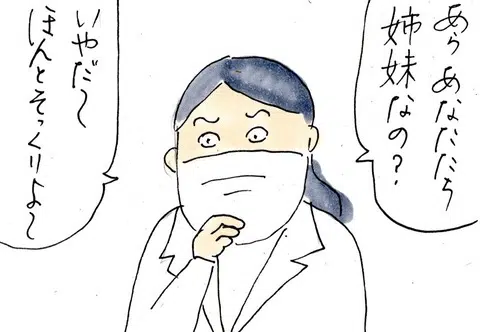 あら あなたたち
姉妹なの?
いやだ〜
ほんとそっくりよ〜